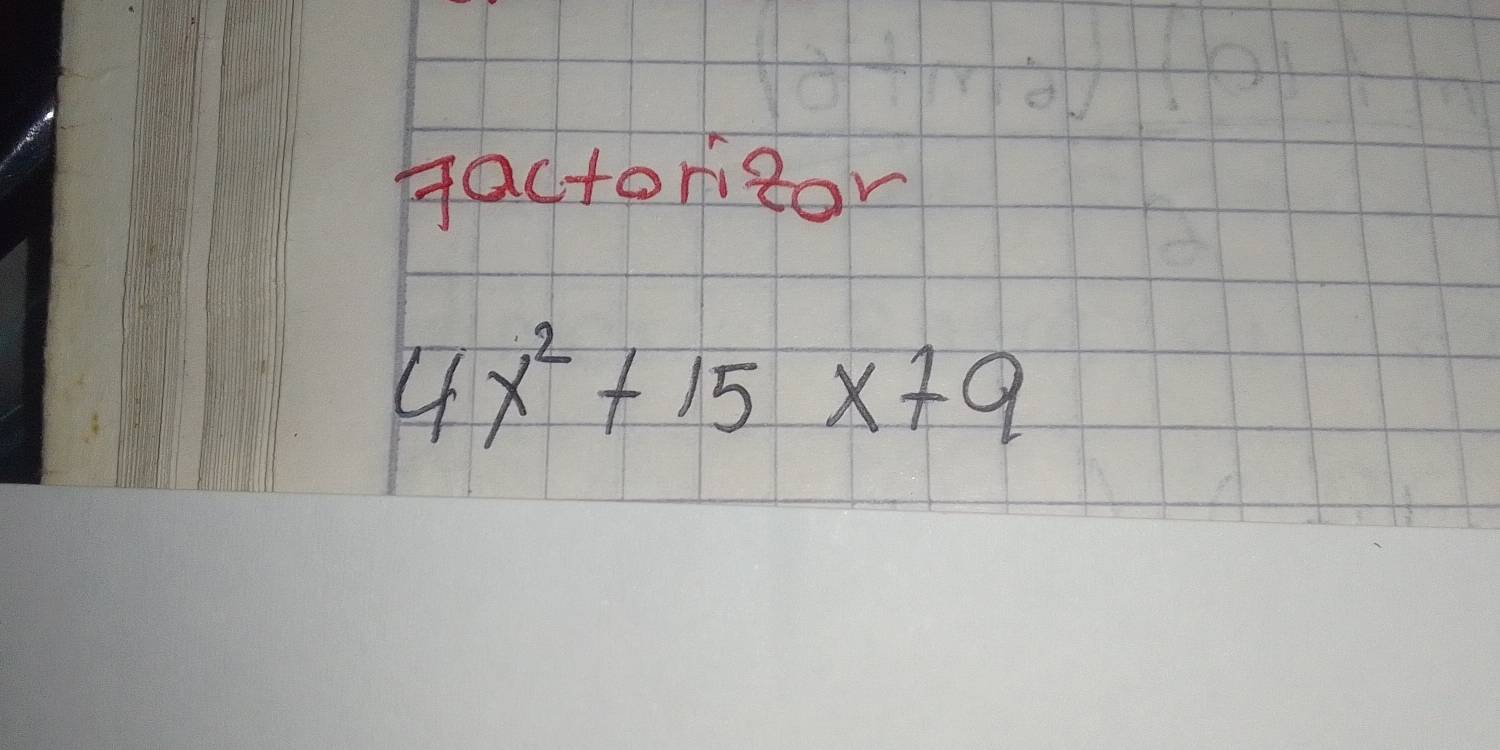 Factorizar
4x² + 15 x + 9